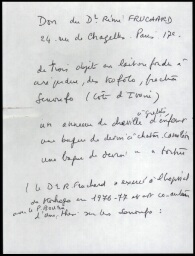 Don du Dr Rémi FRUCHARD
24, rue de Chazelles. Paris. 17e.
de trois objets en laiton fondu à
cire perdue, des Kafolo, fraction
Senoufo (Côte d'Ivoire)
un anneau de cheville d'enfant
une bague de devin à caméléon
une bague de devin à tortue
(Le Dr R Fruchard a exercé à l'hôpital
de Korhogo en 1976-77 et est co-auteur
avec le P.
d'un, sur les senoufo: